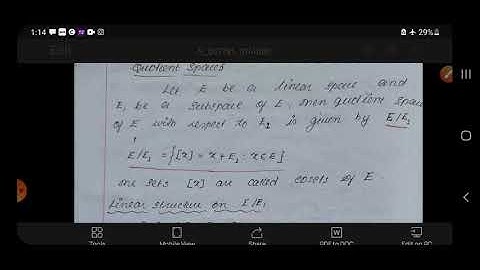 1:14
29%
Edit
Quotient Spaces
Let E be a linear space and
E₁ be a subspace of E, then quotient space
of E with respect to E₁ is given by E/E₁
E/E₁ = {[x] = x + E₁ : x ∈ E}
The sets [x] are called cosets of E
Linear structure on E/E₁
Tools
Mobile View
Share
PDF to DOC
Edit on PC